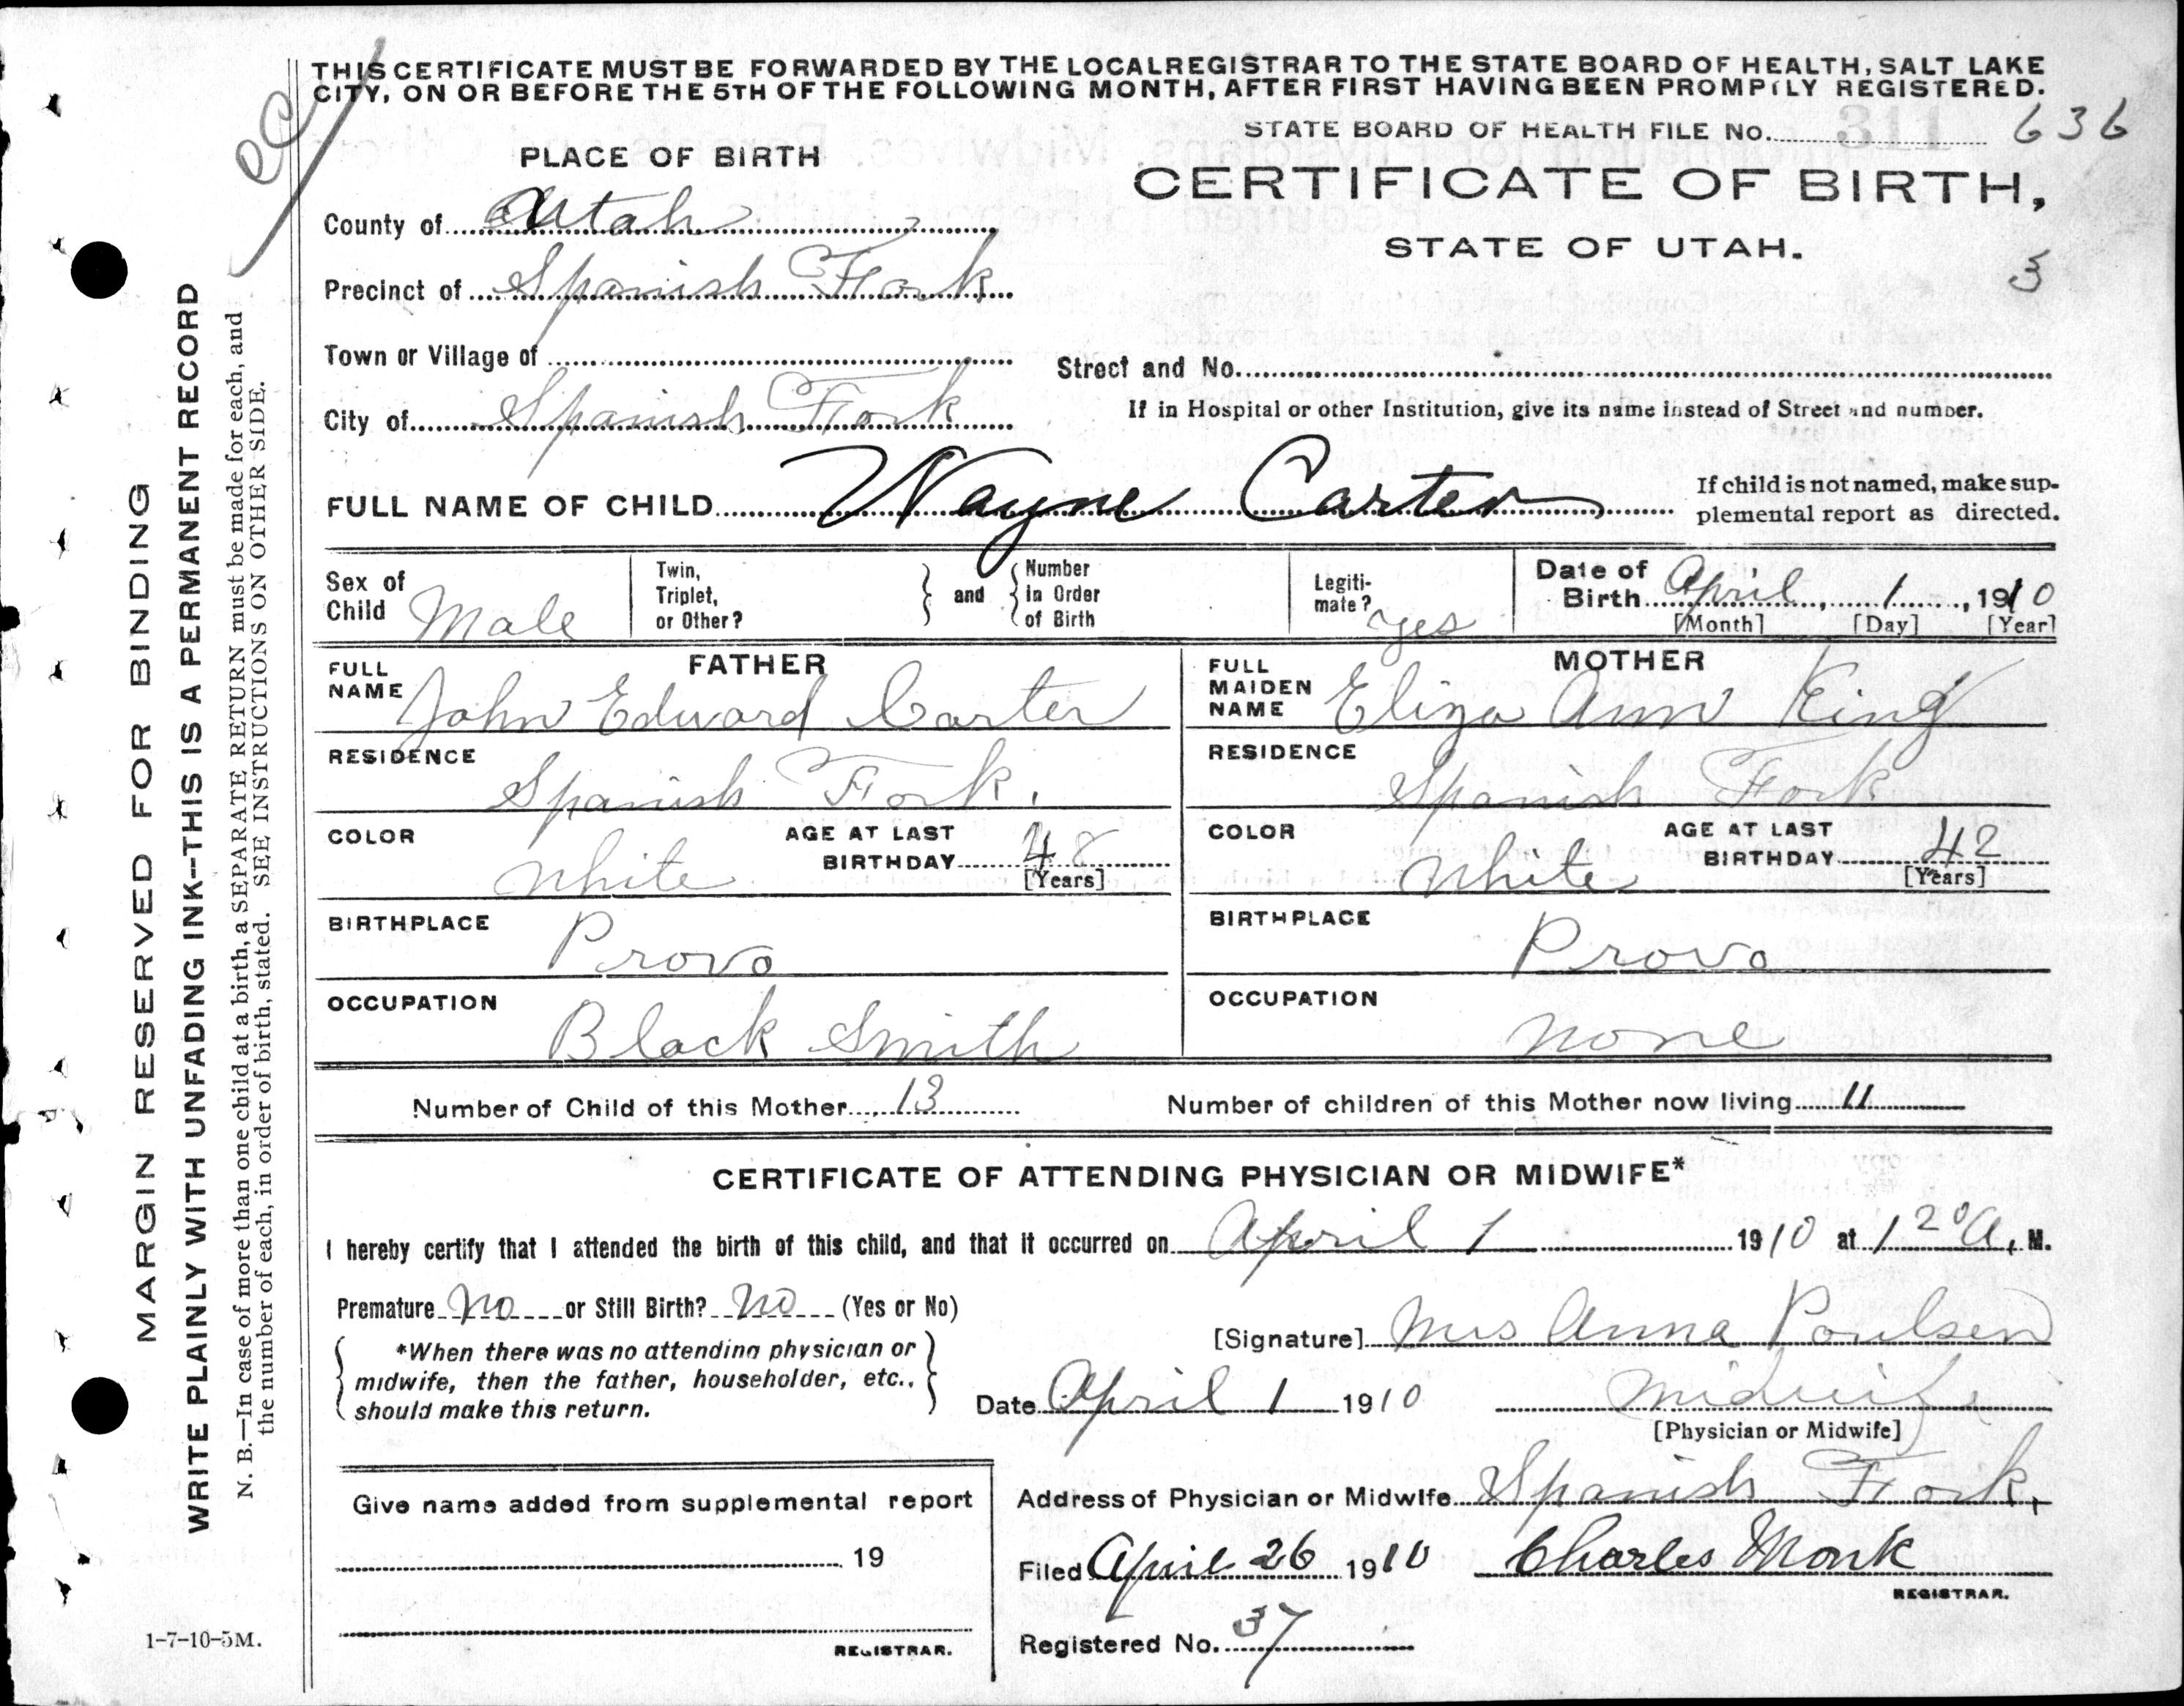 THIS CERTIFICATE MUST BE FORWARDED BY THE LOCAL REGISTRAR TO THE STATE BOARD OF HEALTH, SALT LAKE
CITY, ON OR BEFORE THE 5TH OF THE FOLLOWING MONTH, AFTER FIRST HAVING BEEN PROMPTLY REGISTERED.
STATE BOARD OF HEALTH FILE No. 311 636
PLACE OF BIRTH
CERTIFICATE OF BIRTH,
STATE OF UTAH.
3
County of Utah
Precinct of Spanish Fork
Town or Village of
Street and No.
City of Spanish Fork
If in Hospital or other Institution, give its name instead of Street and number.
FULL NAME OF CHILD Wayne Carter
If child is not named, make sup-
plemental report as directed.
Sex of
Child Male
Twin,
Triplet,
or Other?
and
Number
in Order
of Birth
Legiti-
mate? yes
Date of
Birth April, 1, 1910
[Month] [Day] [Year]
FATHER
FULL
NAME John Edward Carter
RESIDENCE
Spanish Fork.
COLOR White
AGE AT LAST
BIRTHDAY 48
[Years]
BIRTHPLACE
Provo
OCCUPATION
Black Smith
MOTHER
FULL
MAIDEN
NAME Eliza Ann King
RESIDENCE
Spanish Fork
COLOR White
AGE AT LAST
BIRTHDAY 42
[Years]
BIRTHPLACE
Provo
OCCUPATION
none
Number of Child of this Mother 13
Number of children of this Mother now living 11
CERTIFICATE OF ATTENDING PHYSICIAN OR MIDWIFE*
I hereby certify that I attended the birth of this child, and that it occurred on April 1 1910 at 1 20 A, M.
Premature no or Still Birth? no (Yes or No)
*When there was no attending physician or
midwife, then the father, householder, etc.,
should make this return.
[Signature] Mrs Anna Poulsen
Date April 1 1910
midwife
[Physician or Midwife]
Give name added from supplemental report
19
REGISTRAR.
Address of Physician or Midwife Spanish Fork,
Filed April 26 1910 Charles Monk
REGISTRAR.
Registered No. 37
MARGIN RESERVED FOR BINDING
WRITE PLAINLY WITH UNFADING INK--THIS IS A PERMANENT RECORD
N. B.—In case of more than one child at a birth, a SEPARATE RETURN must be made for each, and
the number of each, in order of birth, stated. SEE INSTRUCTIONS ON OTHER SIDE.
1-7-10-5M.